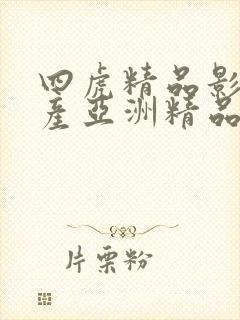 四虎精品影
産亞洲精品
片栗粉